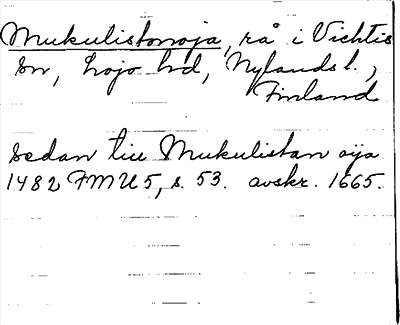 Mukulistonoja, rå i Vichtis
sn, Lojo hd, Nylands l.,
Finland
sedan till Mukulistan oja
1482 FMU 5, s. 53. avskr. 1665.